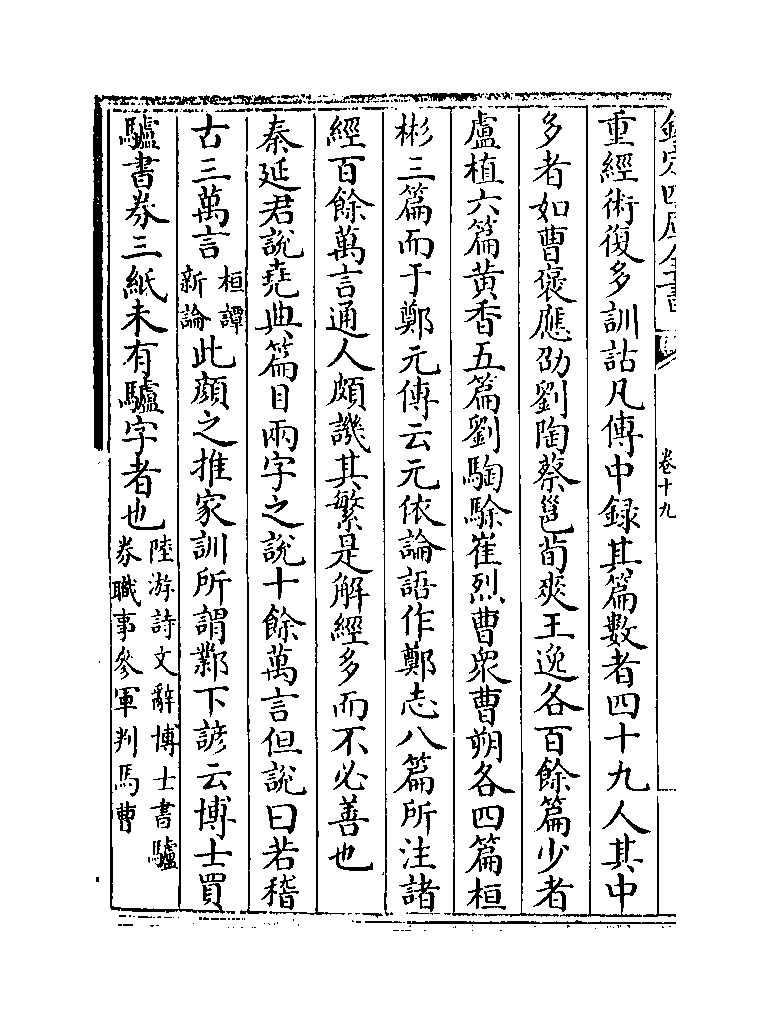 欽定四庫全書
卷十九
重經術復多訓詁凡傳中録其篇數者四十九人其中
多者如曹褒應劭劉陶蔡邕荀爽王逸各百餘篇少者
盧植六篇黃香五篇劉騊駼崔烈曹衆曹朔各四篇桓
彬三篇而于鄭元傳云元依論語作鄭志八篇所注諸
經百餘萬言通人頗譏其繁是解經多而不必善也
秦延君說堯典篇目兩字之說十餘萬言但說曰若稽
古三萬言桓譚新論此顔之推家訓所謂鄴下諺云博士買
驢書券三紙未有驢字者也陸游詩文辭博士書驢券職事參軍判馬曹